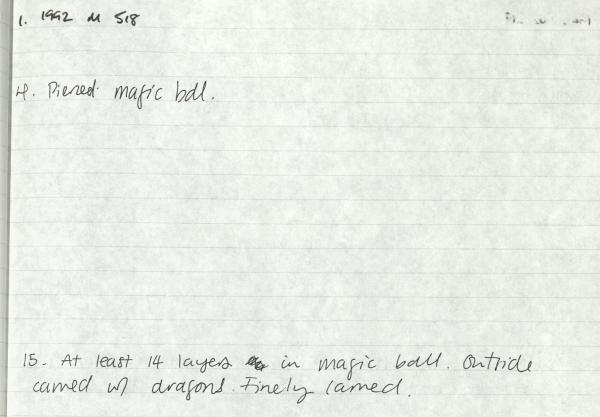 1. 1992 M 518
4. Pierced magic ball.
15. At least 14 layers in magic ball. Outside
carved w/ dragons. Finely carved.